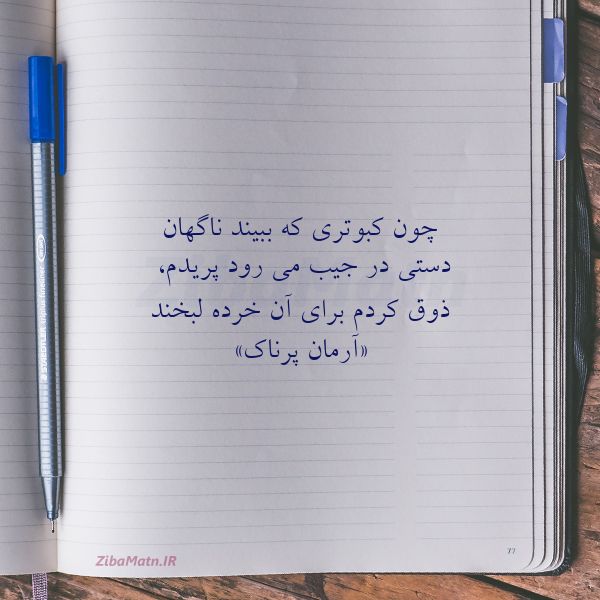 چون کبوتری که ببیند ناگهان
دستی در جیب می رود پریدم،
ذوق کردم برای آن خرده لبخند
«آرمان پرناک»
ZibaMatn.IR
77